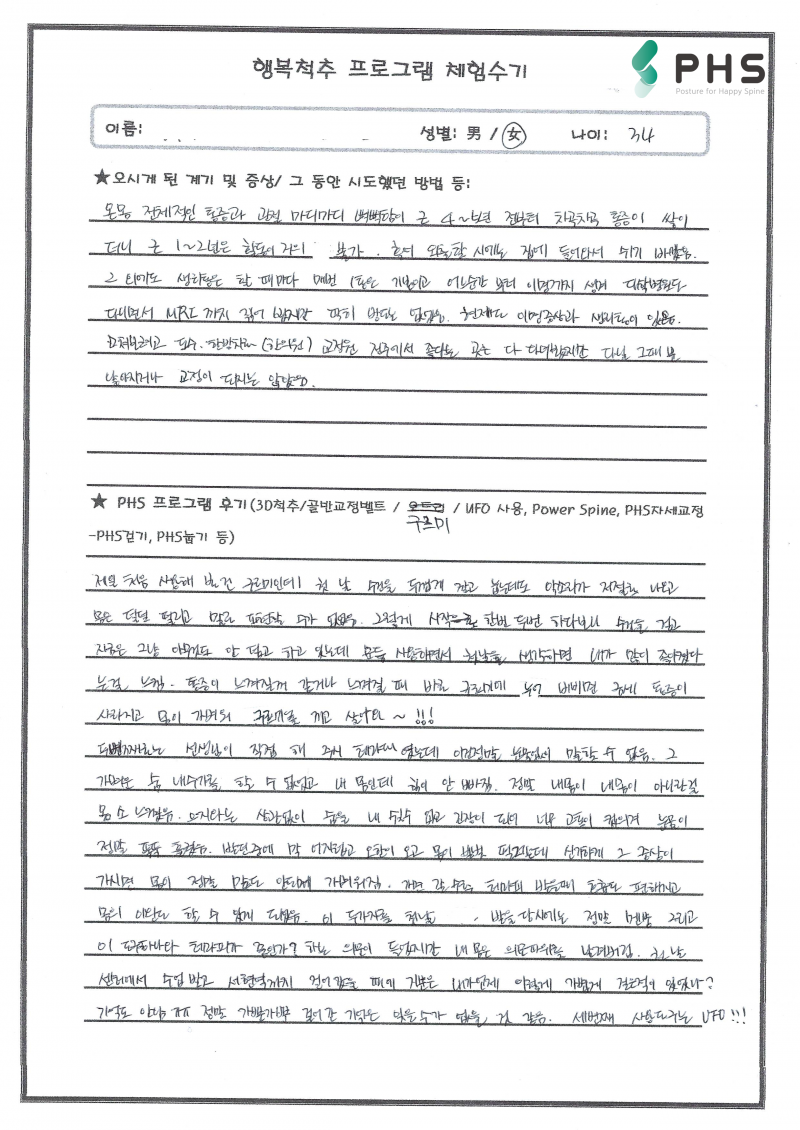 행복척추 프로그램 체험수기
PHS
Posture for Happy Spine
이름:
성별: 男 / 女
나이: 34
★오시게 된 계기 및 증상/ 그 동안 시도했던 방법 등:
온몸 전체적인 통증과 관절 마디마디 뻑뻑함이 근 4~5년 전부터 차곡차곡 통증이 쌓이
더니 근 1~2년은 활동이 거의 불가. 혹여 외출할 시에는 집에 들어와서 쉬기 바빴음.
그 외에도 생리통은 할 때마다 매번 기본이고 어느순간 부터 이명까지 생겨 대학병원도
다니면서 MRI 까지 찍어 봤지만 딱히 방도는 없었음. 현재도 이명증상과 생리통이 있음.
고쳐보려고 한방치료(한의원) 교정원 전주에서 좋다는 곳은 다 다녀봤지만 다닐 그때 뿐
나아지거나 교정이 되지는 않았음.
★ PHS 프로그램 후기(3D척추/골반교정벨트 / / UFO 사용, Power Spine, PHS자세교정
구르미
-PHS걷기, PHS눕기 등)
제일 처음 사용해 본 건 구르미인데 첫 날 수건을 두껍게 깔고 눕는데도 악소리가 저절로 나오고
몸은 덜덜 떨리고 말로 표현할 수가 없었음. 그렇게 시작 한번 두번 하다보니 수건을 걷고
지금은 그냥 아무것도 안 덮고 하고 있는데 사용하면서 첫날을 생각하면 내가 많이 좋아졌다
는걸 느낌. 통증이 느껴질꺼 같거나 느껴질 때 바로 구르미에 누워 비비면 금세 통증이
사라지고 몸이 가벼워 구르미를 끼고 살아요~!!!
두번째로는 선생님이 직접 해 주시 테라피 였는데 이건정말 눈물없이 말할 수 없음. 그
가벼운 숨 내쉬기를 할 수 없었고 내 몸인데 힘이 안 빠짐. 정말 내몸이 내몸이 아니란걸
몸소 느꼈음. 의지와는 상관없이 숨을 내 쉴수 없고 긴장이 되어 너무 고통이 컸으며 눈물이
정말 펑펑 흘렀음. 받던중에 막 어지럽고 오한이 오고 몸이 신기하게 그 증상이
가시면 몸이 정말 말도 안되게 가벼워짐. 가면 갈 수록 테라피 받을때 호흡도 편해지고
몸의 이완도 할 수 있게 되었음. 이 두가지를 첫날 받을 당시에는 정말 멘붕 그리고
이 테라피가 뭔가? 하는 의문이 들었지만 내 몸은 의문따위를 날려버림. 첫 날
센터에서 수업 받고 서현역까지 걸어갔을 때의 기분은 내가언제 이렇게 가볍게 걸은적이 있었나?
기억도 안남 ㅠㅠ 정말 가벼웁가볍 걸어간 기억은 잊을수가 없을 것 같음. 세번째 사용도구는 UFO!!!